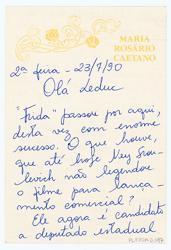 MARIA
ROSÁRIO
CAETANO
2ª feira - 23/7/90
Olá Leduc
"Frida" passou por aqui,
desta vez com enorme
sucesso. O que houve,
que até hoje Ney Srou-
levich não legendou
o filme para lança-
mento comercial?
Ele agora é candidato
a deputado estadual